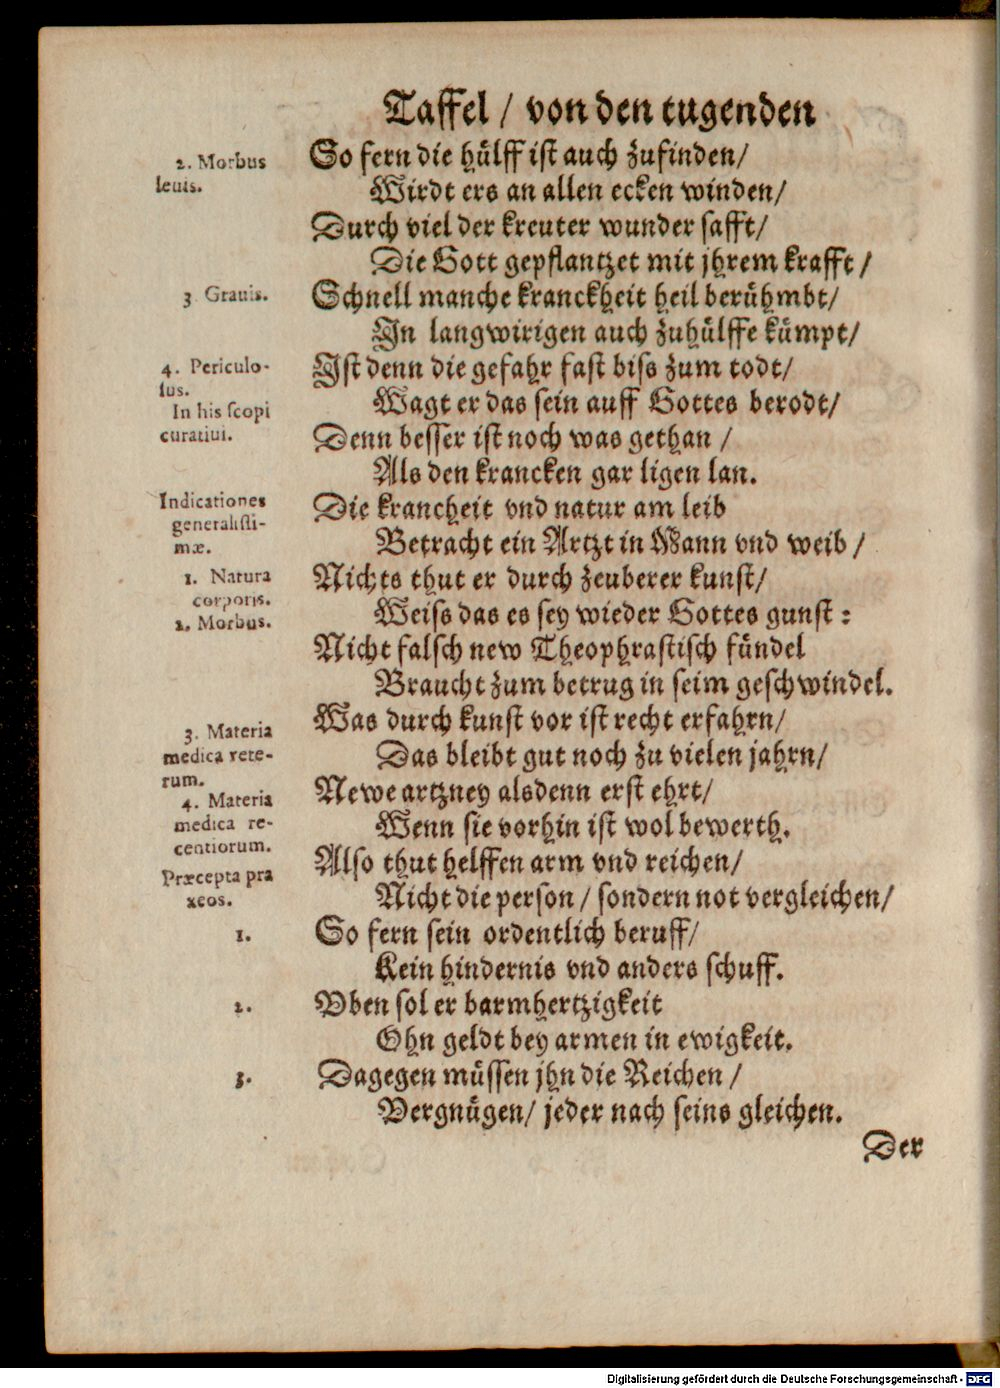 Taffel / von den tugenden
2. Morbus
leuis.
So fern die hülff ist auch zufinden/
Wirdt ers an allen ecken winden/
Durch viel der kreuter wunder safft/
Die Gott gepflantzet mit jhrem krafft /
3 Grauis.
Schnell manche kranckheit heil berühmbt/
In langwirigen auch zuhülffe kümpt/
4. Periculo-
sus.
In his scopi
curatiui.
Ist denn die gefahr fast biss zum todt/
Wagt er das sein auff Gottes berodt/
Denn besser ist noch was gethan /
Als den krancken gar ligen lan.
Indicationes
generalissi-
mæ.
Die krancheit vnd natur am leib
Betracht ein Artzt in Mann vnd weib /
1. Natura
corporis.
2. Morbus.
Nichts thut er durch zeuberer kunst/
Weiss das es sey wieder Gottes gunst :
Nicht falsch new Theophrastisch fündel
Braucht zum betrug in seim geschwindel.
3. Materia
medica vete-
rum.
Was durch kunst vor ist recht erfahrn/
Das bleibt gut noch zu vielen jahrn/
4. Materia
medica re-
centiorum.
Newe artzney alsdenn erst ehrt/
Wenn sie vorhin ist wol bewerth.
Præcepta pra
xeos.
Also thut helffen arm vnd reichen/
Nicht die person / sondern not vergleichen/
1.
So fern sein ordentlich beruff/
Kein hindernis vnd anders schuff.
2.
Vben sol er barmhertzigkeit
Ohn geldt bey armen in ewigkeit.
3.
Dagegen müssen jhn die Reichen /
Vergnügen/ jeder nach seins gleichen.
Der
Digitalisierung gefördert durch die Deutsche Forschungsgemeinschaft - DFG